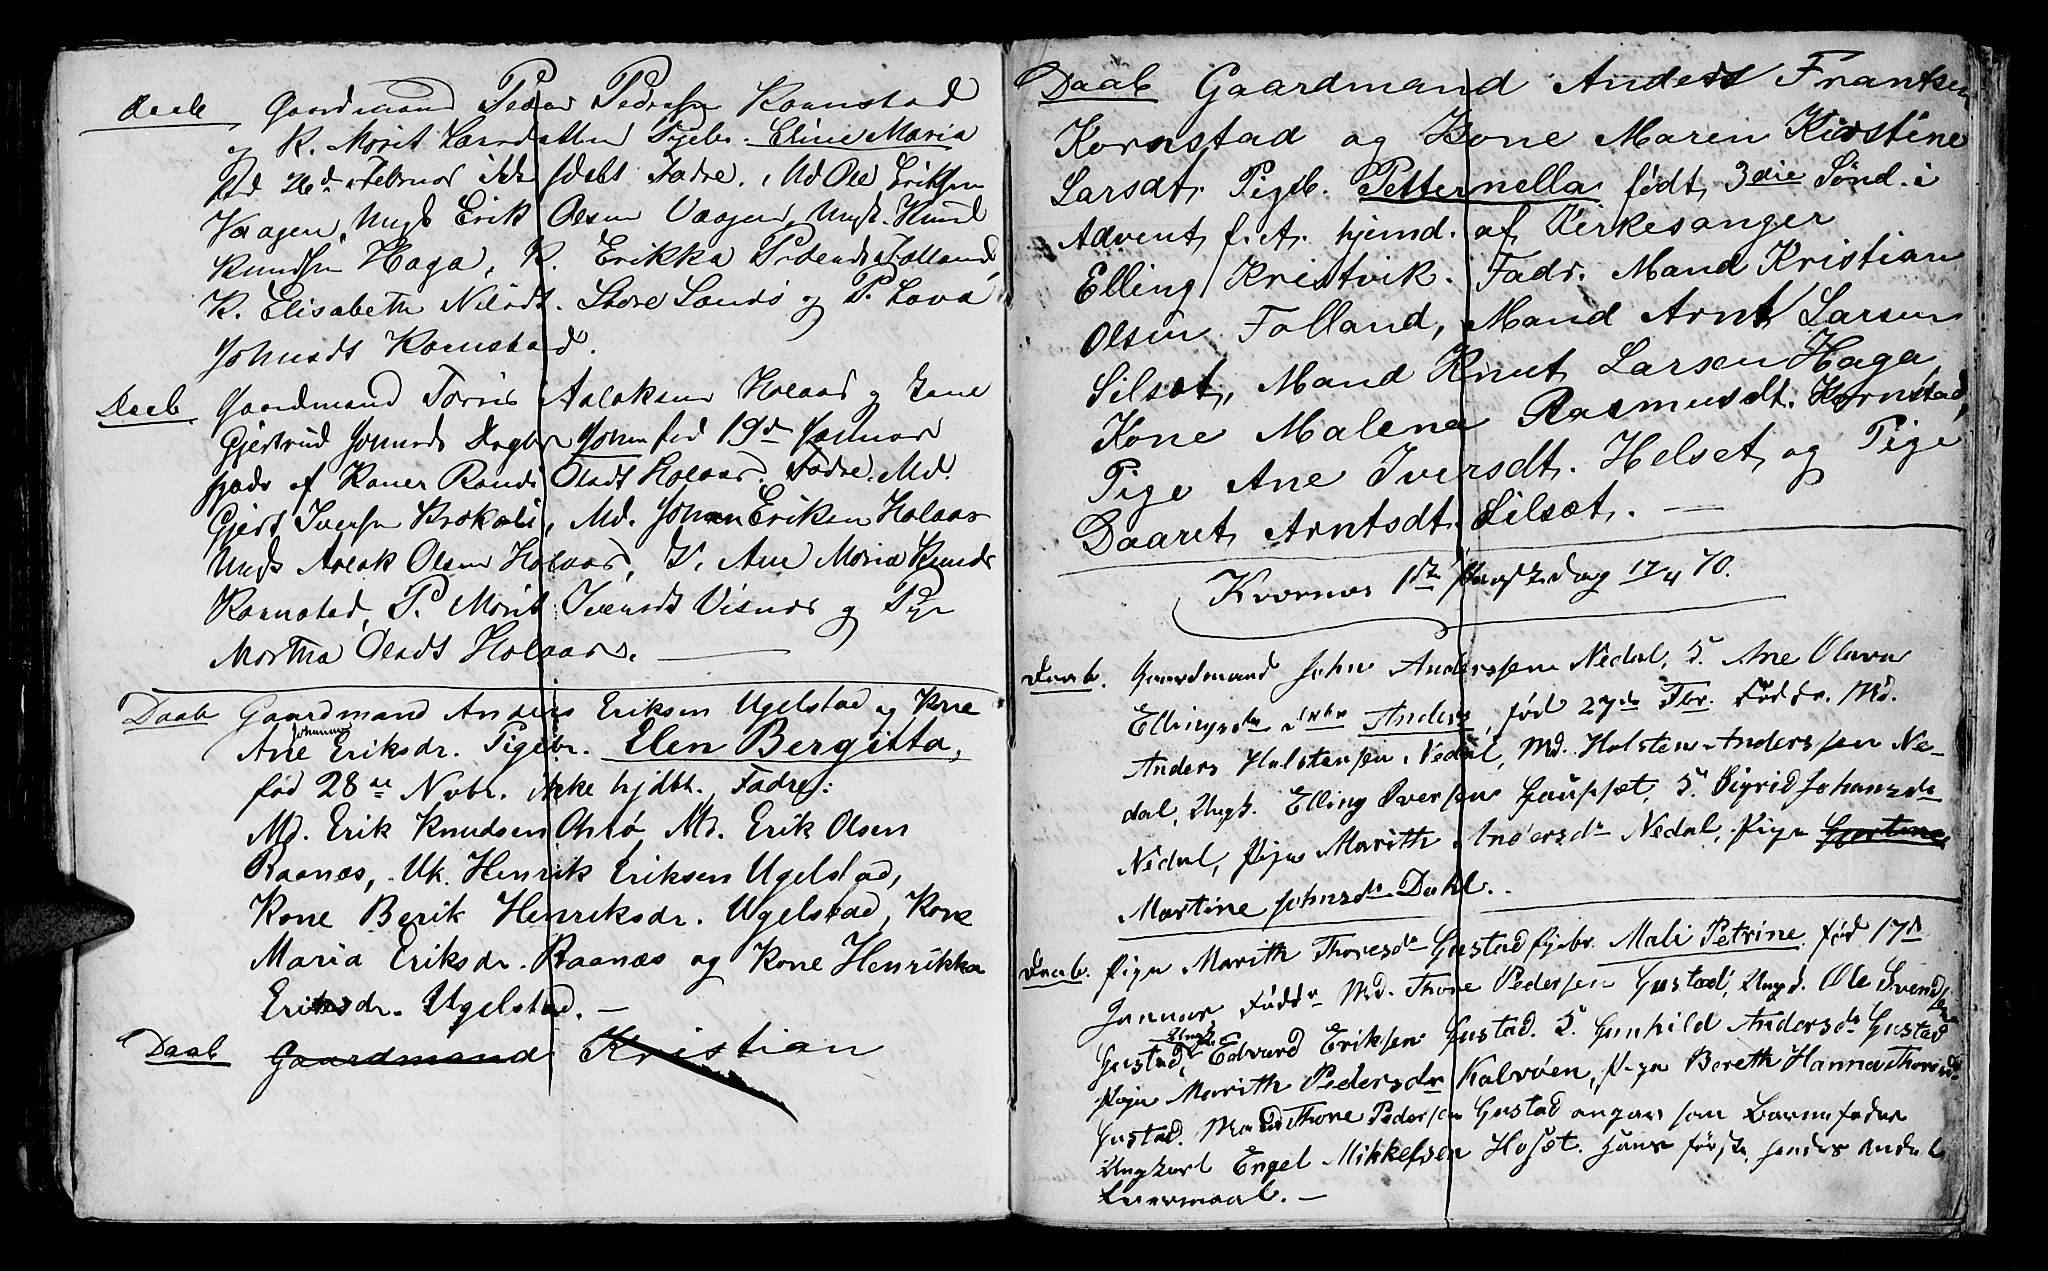 Daab Gaardmand Peder Pedersen Kornstad
og K. Marit Larsdatter Pigebr. Eline Maria
fød 26d Februar ikke hjdøbt Fadre. Md Ole Eriksen
Vaagen, Ungk Erik Olsen Vaagen, Ungk. Knud
Knudsen Haga, K. Erikka Folland,
K. Elisabeth Nilsdt. Store Sandø og P. Lava
Johnsdt Kornstad.
Daab Gaardmand Aslaksen Holaas og Kone
Gjertrud Johnsd. Drgbr John fød 19de Januar
hjdø af Kaner Randi Olsdt Holaas. Fadre. Md.
Gjert Iversen Brokali, Md. Johan Eriksen Holaas
Ungk Aslak Olsen Holaas, K. Ane Maria Knudsd
Kornstad, P. Marit Iversdt Visnes og Pige
Martha Olsdt Holaas.
Daab Gaardmand Anders Eriksen Ugelstad og Kone
Ane Johanna Eriksdr. Pigebr. Elen Bergitta,
fød 28de Nvbr. ikke hjdbt. Fadre:
Md. Erik Knudsen Ohrsø Md. Erik Olsen
Raanæs, Uk. Henrik Eriksen Ugelstad,
Kone Berit Henriksdr. Ugelstad, Kone
Maria Eriksdr. Raanæs og Kone Henrikka
Eriksdr. Ugelstad. —
Daab Gaardmand Kristian
Daab Gaardmand Anders Frantsen
Kornstad og Kone Maren Kirstine
Larsdt. Pigeb. Petternella født 3die Sönd. i
Advent f. A. hjemd. af Kirkesanger
Elling Kristvik. Fadr. Mand Kristian
Olsen Folland, Mand Arnt Larsen
Silset, Mand Knut Larsen Haga,
Kone Malena Rasmusdt. Kornstad,
Pige Ane Iversdt. Helset og Pige
Daaret Arntsdt. Silset. —
Kvernes 1ste Paaskedag 17/4 70.
Daab. Gaardmand John Anderssen Nedal, H. Ane Olava
Ellingsdr drbr Anders, fød 27de Fbr. Faddr. Md.
Anders Halstensen Nedal, Md. Halsten Anderssen Ne-
dal, Ungk. Elling Iversen Gaupset, H. Sigrid Johansdr
Nedal, Pige Marith Andersdr Nedal, Pige Gjertine
Martine Johnsdr Dahl.
Daab. Pige Marith Thoresdr Gustad Pigebr. Mali Petrine fød 17d
Januar Faddr Md. Thore Pedersen Gustad, Ungk. Ole Svendsen
Gustad, Ungk. Edvard Eriksen Gustad. H. Gunhild Andersdr Gustad
Pige Marith Pedersdr Kalvöen, Pige Bereth Hanna Thoresdr
Gustad. Mand Thore Pedersen Gustad angav som Barnefader
Ungkarl Engel Mikkelsen Hoset. Hans første, hendes andet
Leiermaal. —